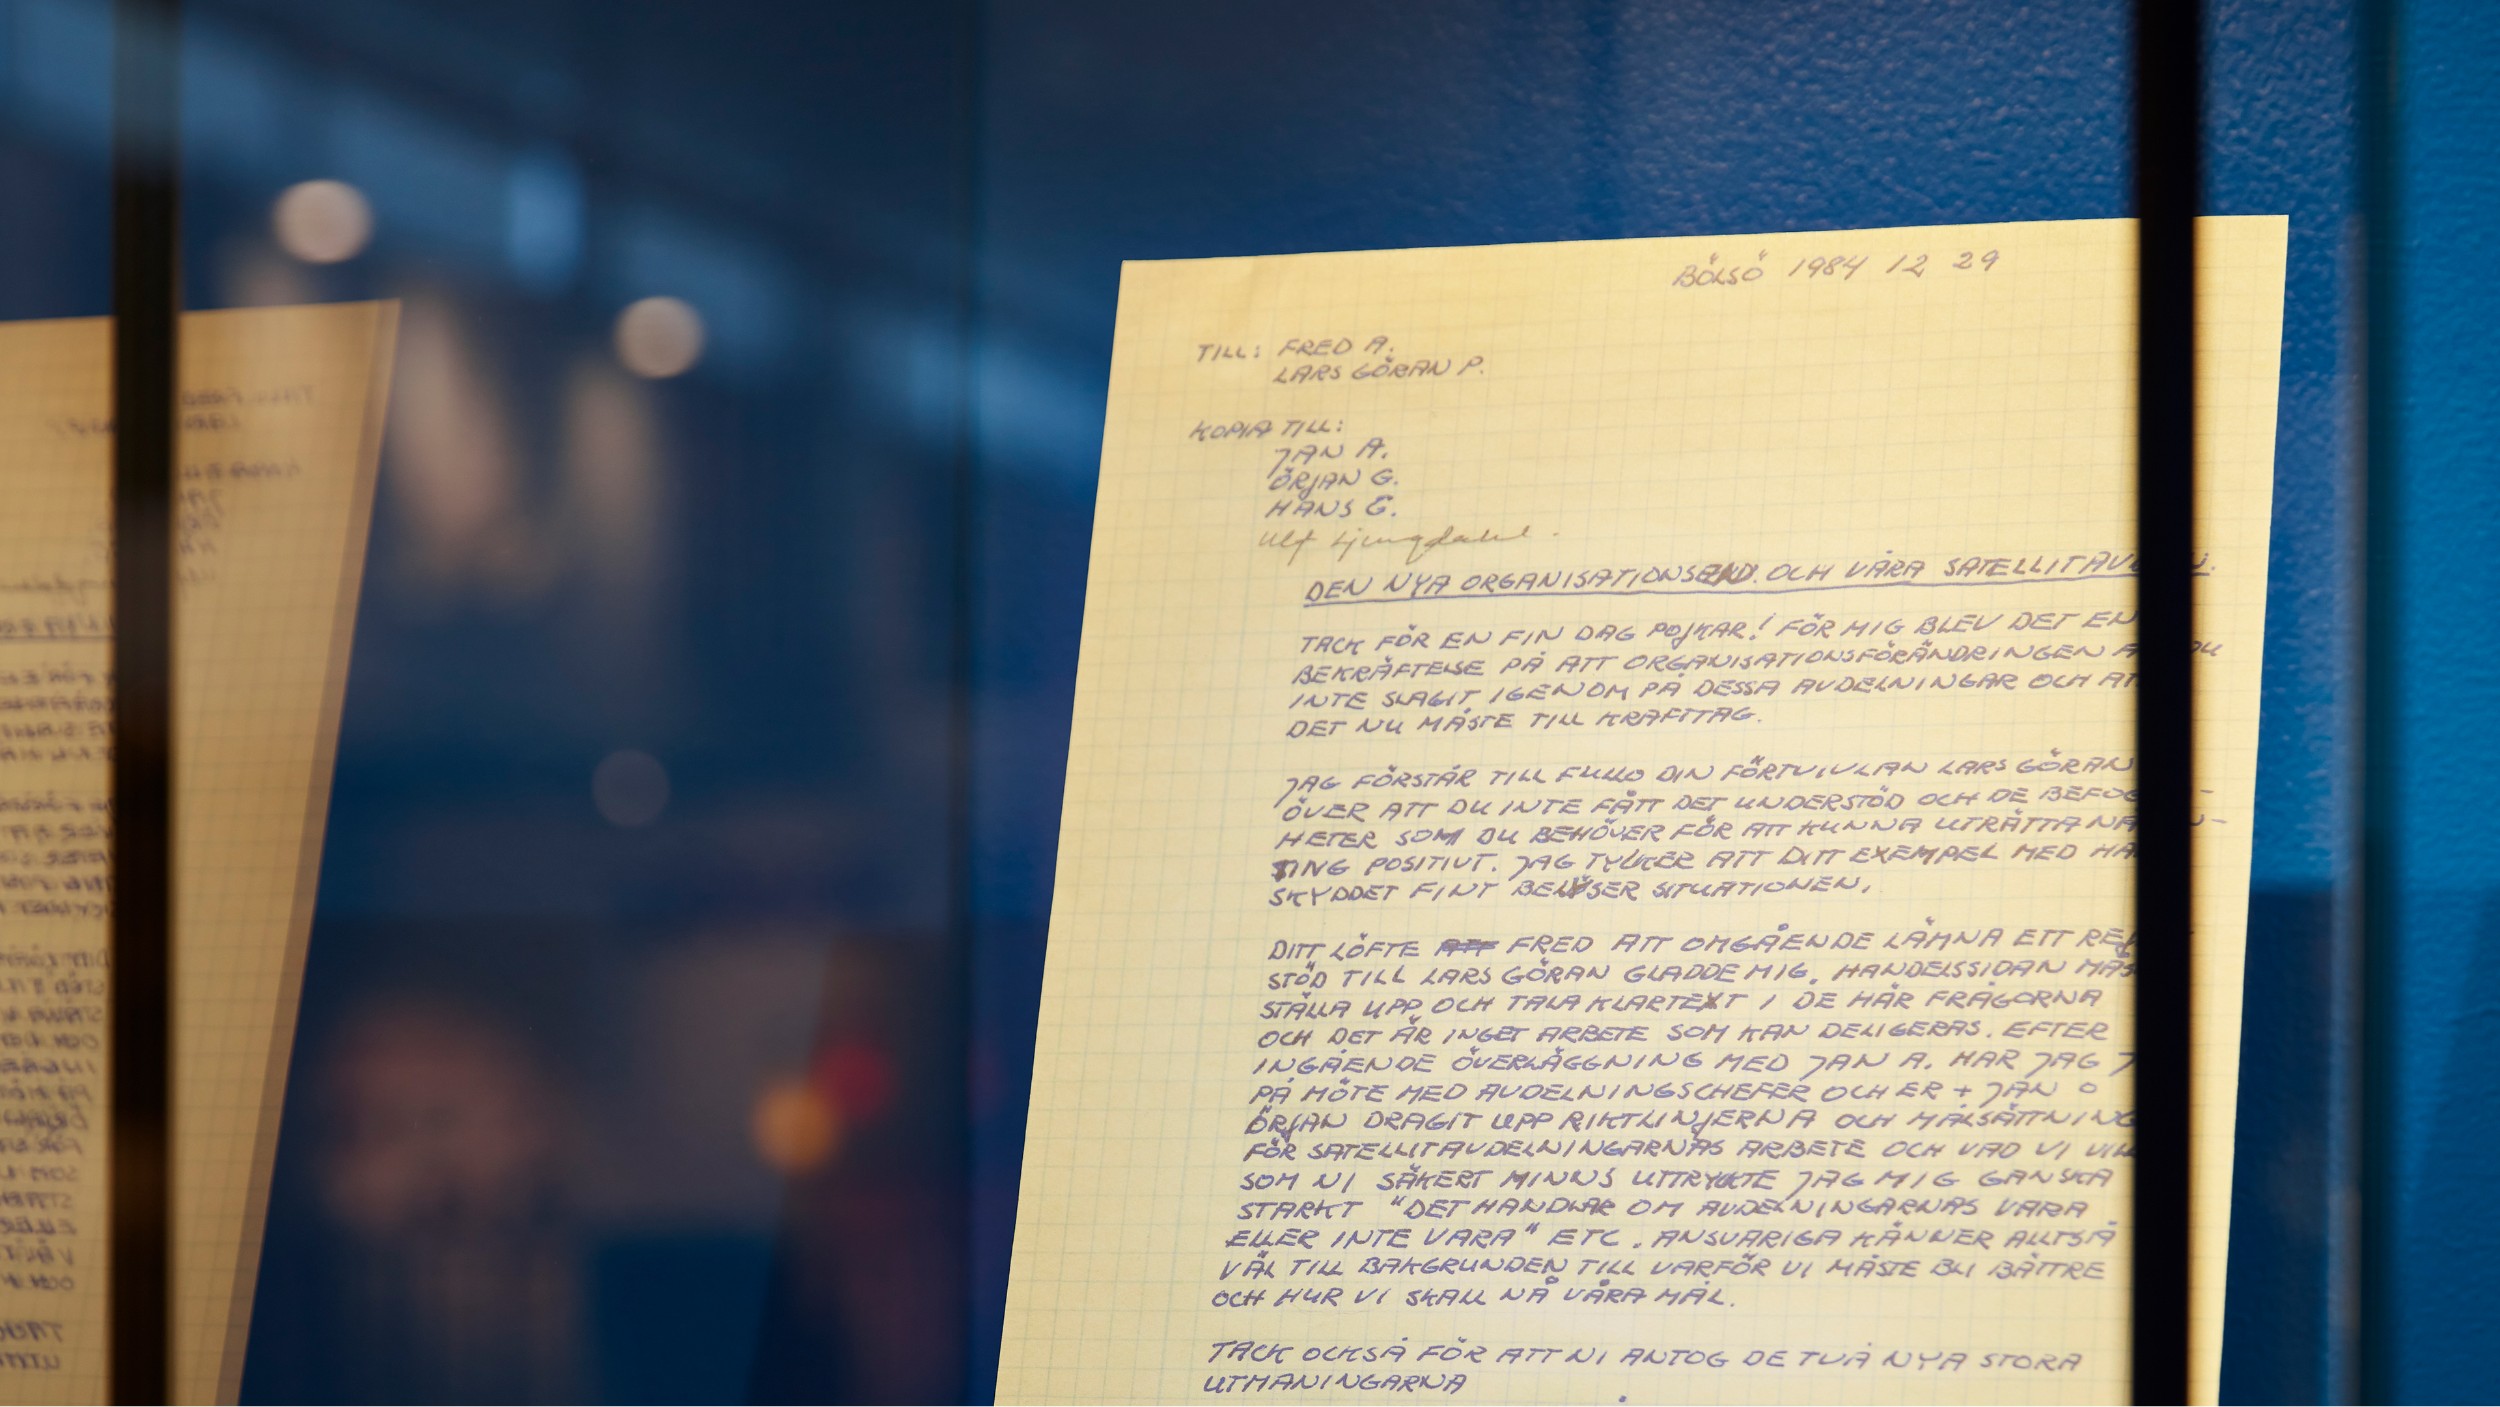 BÖLSÖ 1984 12 29
TILL: FRED A.
LARS GÖRAN P.
KOPIA TILL:
JAN A.
ÖRJAN G.
HANS G.
Ulf Ljungdahl.
DEN NYA ORGANISATIONSAND. OCH VÅRA SATELLITAV
TACK FÖR EN FIN DAG POJKAR! FÖR MIG BLEV DET EN
BEKRÄFTELSE PÅ ATT ORGANISATIONSFÖRÄNDRINGEN
INTE SLAGIT IGENOM PÅ DESSA AVDELNINGAR OCH AT
DET NU MÅSTE TILL KRAFTTAG.
JAG FÖRSTÅR TILL FULLO DIN FÖRTVIVLAN LARS GÖRAN
ÖVER ATT DU INTE FÅTT DET UNDERSTÖD OCH DE BEFOG -
HETER SOM DU BEHÖVER FÖR ATT KUNNA UTRÄTTA NÅ
TING POSITIVT. JAG TYCKER ATT DITT EXEMPEL MED HA
SKYDDET FINT BELYSER SITUATIONEN.
DITT LÖFTE FRED ATT OMGÅENDE LÄMNA ETT REJ
STÖD TILL LARS GÖRAN GLADDE MIG. HANDELSSIDAN MÅS
STÄLLA UPP OCH TALA KLARTEXT I DE HÄR FRÅGORNA
OCH DET ÄR INGET ARBETE SOM KAN DELIGERAS. EFTER
INGÅENDE ÖVERLÄGGNING MED JAN A. HAR JAG
PÅ MÖTE MED AVDELNINGSCHEFER OCH ER + JAN O
ÖRJAN DRAGIT UPP RIKTLINJERNA OCH MÅLSÄTTNING
FÖR SATELLITAVDELNINGARNAS ARBETE OCH VAD VI VILL
SOM NI SÄKERT MINNS UTTRYCKTE JAG MIG GANSKA
STARKT "DET HANDLAR OM AVDELNINGARNAS VARA
ELLER INTE VARA" ETC. ANSVARIGA KÄNNER ALLTSÅ
VÄL TILL BAKGRUNDEN TILL VARFÖR VI MÅSTE BLI BÄTTRE
OCH HUR VI SKALL NÅ VÅRA MÅL.
TACK OCKSÅ FÖR ATT NI ANTOG DE TVÅ NYA STORA
UTMANINGARNA